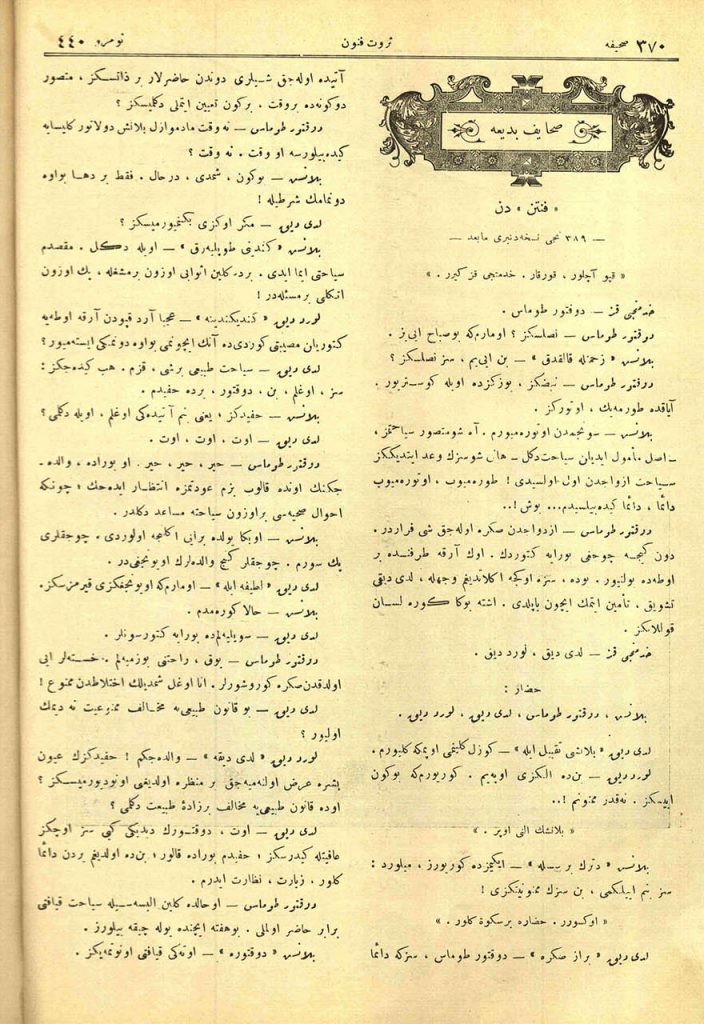 ٣٧٠ صحيفه
ثروت فنون
نومرو ٤٤٠
صحايف بديعه
« فنتن » دن
— ٣٨٩ نجی نسخه‌دنبری مابعد —
« قپو آچلور ، قورقار . خدمتجی قز كيرر . »
خدمتجی قز — دوقتور طوماس .
دوقتور طوماس — نصلسكز ؟ اومارم‌كه بوصباح اييز .
بلانش « زحمتله قالقه‌رق » — بن اييم ، سز نصلسكز ؟
دوقتور طوماس — نبضكز ، يوزكزده اويله كوستريور .
آياقده طورمه‌يك ، اوتوركز .
بلانش — سونجمدن اوتوره‌ميورم . آه شو متصور سياحتمز ،
ـ اصل مأمول ايديلن سياحت دكل ـ هانی شو سزك وعد ايتديككز
سياحت ازواجدن اول اولسيدی ! طورميوب ، اوتورميوب
دائما ، دائما كيده‌بيلسيدم... بوش !..
دوقتور طوماس — ازدواجدن صكره اوله‌جق شی فراردر .
دون كيجه چوجغی بورايه كتوردك . اوك آرقه طرفنده بر
اوطه‌ده بولنيور . بوده ، سزه اولجه اكلاتديغم وجهله ، لدی ديقی
تشويق ، تأمين ايتمك ايچون ياپلدی . اشته بوكا كوره لسان
قوللانكز .
خدمتجی قز — لدی ديق ، لورد ديق .
حضار :
بلانش ، دوقتور طوماس ، لدی ديق ، لورد ديق .
لدی ديق « بلانشی تقبيل ايله » — كوزل كلينمی اوپمكه كليورم .
لورد ديق — بن‌ده الكزی اوپه‌يم . كورييورم‌كه بوكون
ايیسكز . نه‌قدر ممنونم !..
« بلانشك النی اوپر . »
بلانش « دترك بر سسله » — ايكيكزده كورييورز ، ميلورد :
سز بنم ايیلكمی ، بن سزك ممنونيتكزی !
« اوكسورر . حضاره برسكوت كلور . »
لدی ديق « براز صكره » — دوقتور طوماس ، سزكه دائما
آتيده اوله‌جق شيلری دوندن حاضرلار بر ذاتسكز ، متصور
دوكونه‌ده بروقت ، بركون تعيين ايتملی دكلميسكز ؟
دوقتور طوماس — نه وقت مادموازل بلانش دولانور كليسايه
كيده‌بيلورسه او وقت . نه وقت ؟
بلانش — بوكون ، شمدی ، درحال . فقط بر دها بواوه
دونمامك شرطيله !
لدی ديق — مكر اوكزی بكنميورميسكز ؟
بلانش « كندينی طوپلايه‌رق » — اويله دكل . مقصدم
سياحتی ايما ايدی . برده كلين اثوابی اوزون برمشغله ، يك اوزون
اتكلی برمسئله‌در !
لورد ديق « كندی‌كندينه » — عجبا آرد قپودن آرقه اوطه‌يه
كتوريلن مصيبتی كوردی‌ده آنك ايچونمی بواوه دونمكی ايسته‌ميور ؟
لدی ديق — سياحت طبيعی برشی ، قزم . هب كيده‌جكز :
سز ، اوغلم ، بن ، دوقتور ، برده حفيدم .
بلانش — حفيدكز ؛ يعنی بنم آتيده‌كی اوغلم . اويله دكلمی ؟
لدی ديق — اوت ، اوت ، اوت .
دوقتور طوماس — خير ، خير ، خير . او بوراده ، والده‌ـ
جكنك اونده قالوب بزم عودتمزه انتظار ايده‌جك ؛ چونكه
احوال صحيه‌سی براوزون سياحته مساعد دكلدر .
بلانش — اوبكا يولده برايی اكلنجه اولوردی . چوجقلری
پك سورم . چوجقلر كنج والده‌لرك اويونجغی‌در .
لدی ديق « لطيفه ايله » — اومارم‌كه اويونجغكزی قيرمزسكز .
بلانش — حالا كورمه‌دم .
لدی ديق — سويله‌يه‌لم‌ده بورايه كتورسونلر .
دوقتور طوماس — يوق ، راحتنی بوزميه‌لم . خسته‌لر ايی
اولدقدن صكره كوروشورلر . انا اوغل شمديلك اختلاطدن ممنوع !
لدی ديق — بو قانون طبيعی‌يه مخالف ممنوعيت نه ديمك
اوليور ؟
لورد ديق « لدی ديقه » — والده‌جكم ! حفيدكزك عيون
بشره عرض اولنه‌ميه‌جق بر منظره اولديغی اونوديورميسكز ؟
اوده قانون طبيعی‌يه مخالف برزادۀ طبيعت دكلمی ؟
لدی ديق — اوت ، دوقتورك ديديكی كبی سز اوچكز
عافيتله كيدرسكز ؛ حفيدم بوراده قالور ؛ بن‌ده اولديغم يردن دائما
كلور ، زيارت ، نظارت ايدرم .
دوقتور طوماس — اوحالده كلين البسه‌سيله سياحت قيافتی
برابر حاضر اولملی . بوهفته ايچنده يوله چيقه بيلورز .
بلانش « دوقتوره » — اوته‌كی قيافتی اونوتمه‌يكز .